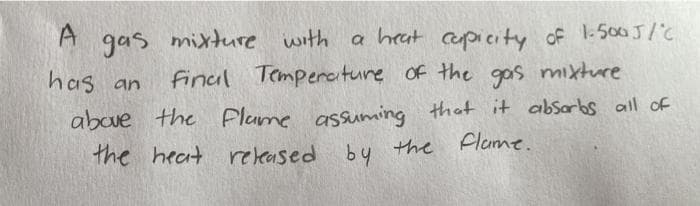 A gas mixture with a heat capicity of 1.500 J/°C
has an final Temperature of the gas mixture
above the flame assuming that it absorbs all of
the heat released by the flame.